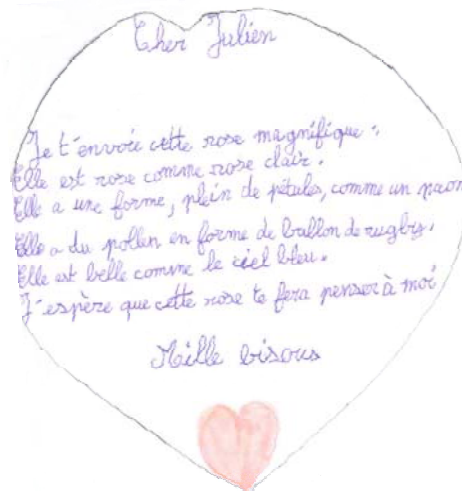 Cher Julien
Je t'envoie cette rose magnifique.
Elle est rose comme rose clair.
Elle a une forme, plein de pétales, comme un paon
Elle a du pollen en forme de ballon de rugby.
Elle est belle comme le ciel bleu.
J'espère que cette rose te fera penser à moi
Mille bisous